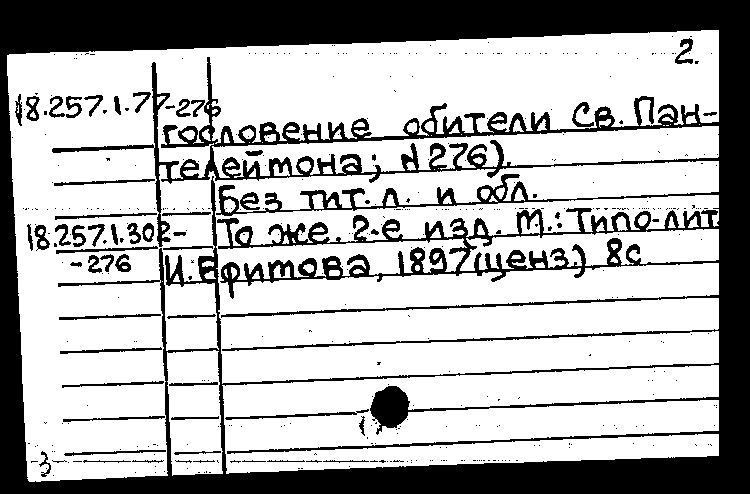 2.
18.257.1.77-276
гословение обители Св. Пан-
телеймона; №276).
Без тит. л. и обл.
18.257.1.302-276
То же. 2-е изд. М.: Типо-лит.
И. Ефимова, 1897 (ценз.). 8с.
3